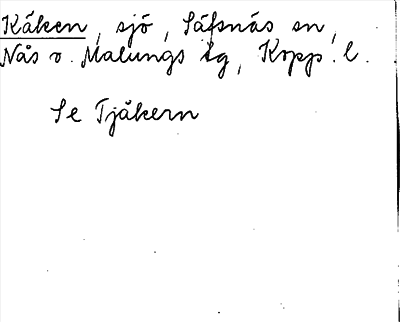 Kåken, sjö, Säfsnäs sn,
Nås o. Malungs tg, Kopp. l.
Se Tjåkern